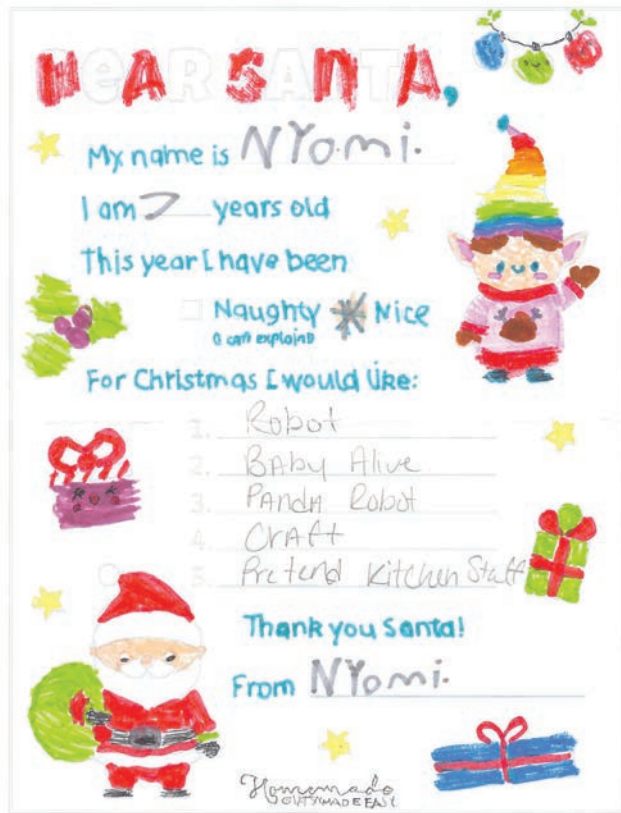 DEAR SANTA,
My name is NYomi.
I am 7 years old
This year I have been
Naughty Nice
(I can explain)
For Christmas I would like:
1. Robot
2. BAby Alive
3. PANdA Robot
4. CrAft
5. Pretend Kitchen Stuff
Thank you Santa!
From NYomi.
Homemade
GIFTS MADE EASY